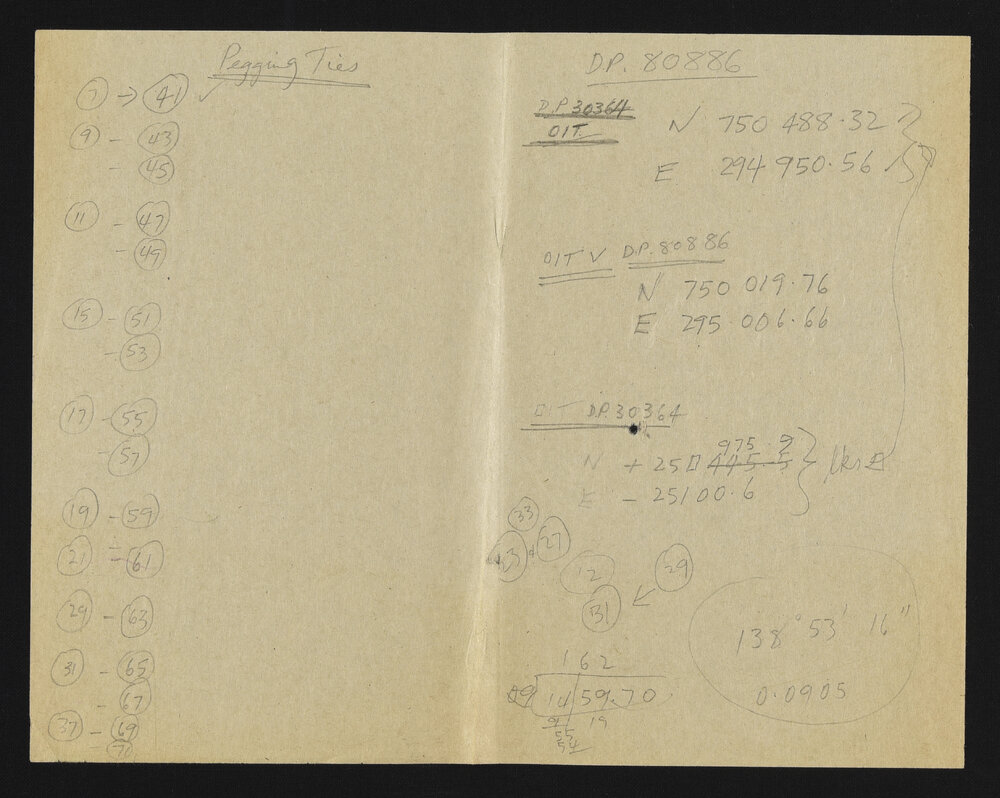 Pegging Ties
7 → 41 ✓
9 - 43
- 45
11 - 47
- 49
15 - 51
- 53
17 - 55
- 57
19 - 59
21 - 61
29 - 63
31 - 65
- 67
37 - 69
- 71
D.P. 80886
D.P 30364
OIT
N 750 488.32
E 294 950.56
OIT V D.P. 80886
N 750 019.76
E 295.006.66
OIT D.P. 30364
975.9
N + 250 445.5
E - 25100.6
33
23 27
12
29
31 ←
162
09 14/59.70
9 19
55
54
138° 53' 16"
0.0905